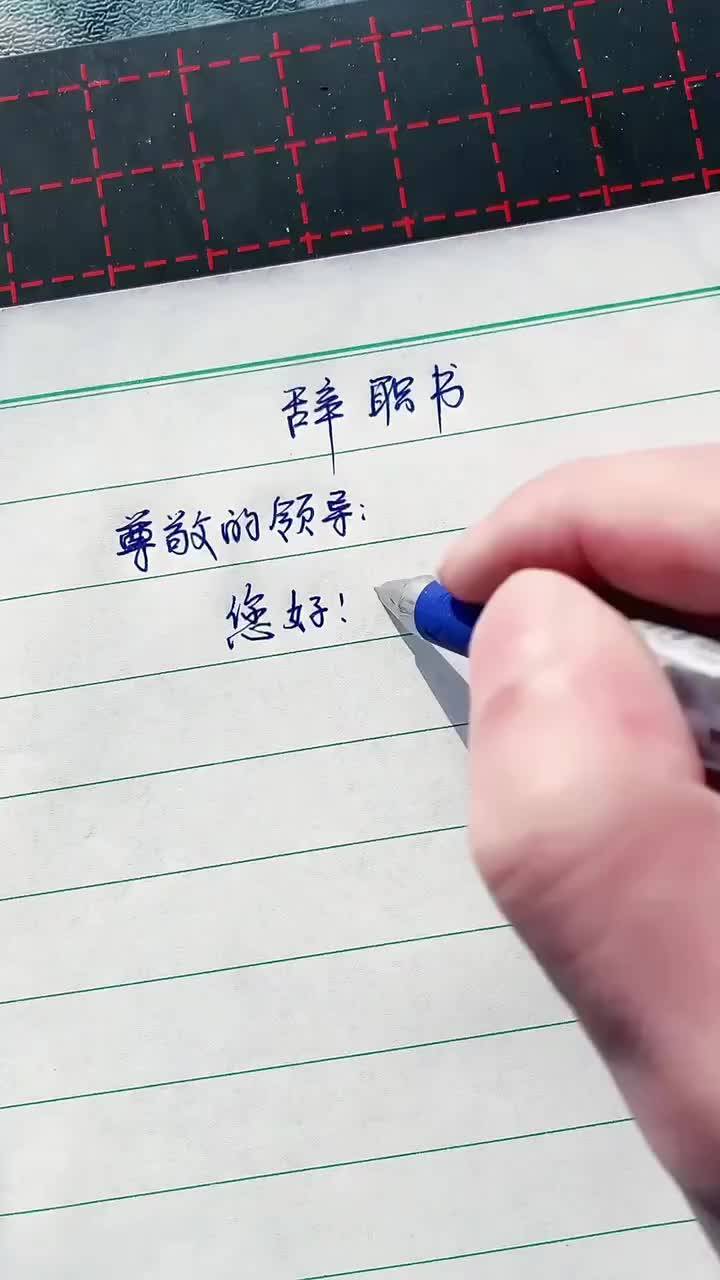 辞职书
尊敬的领导：
您好！